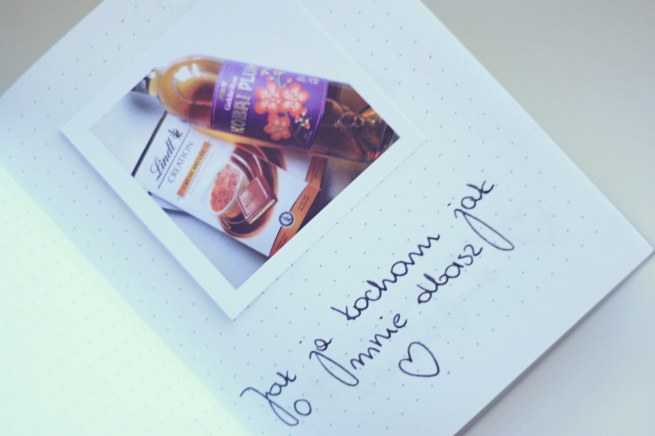 KOBAI PLUM
Lindt
CREATION
Jak ja kocham jak
o mnie dbasz
♡